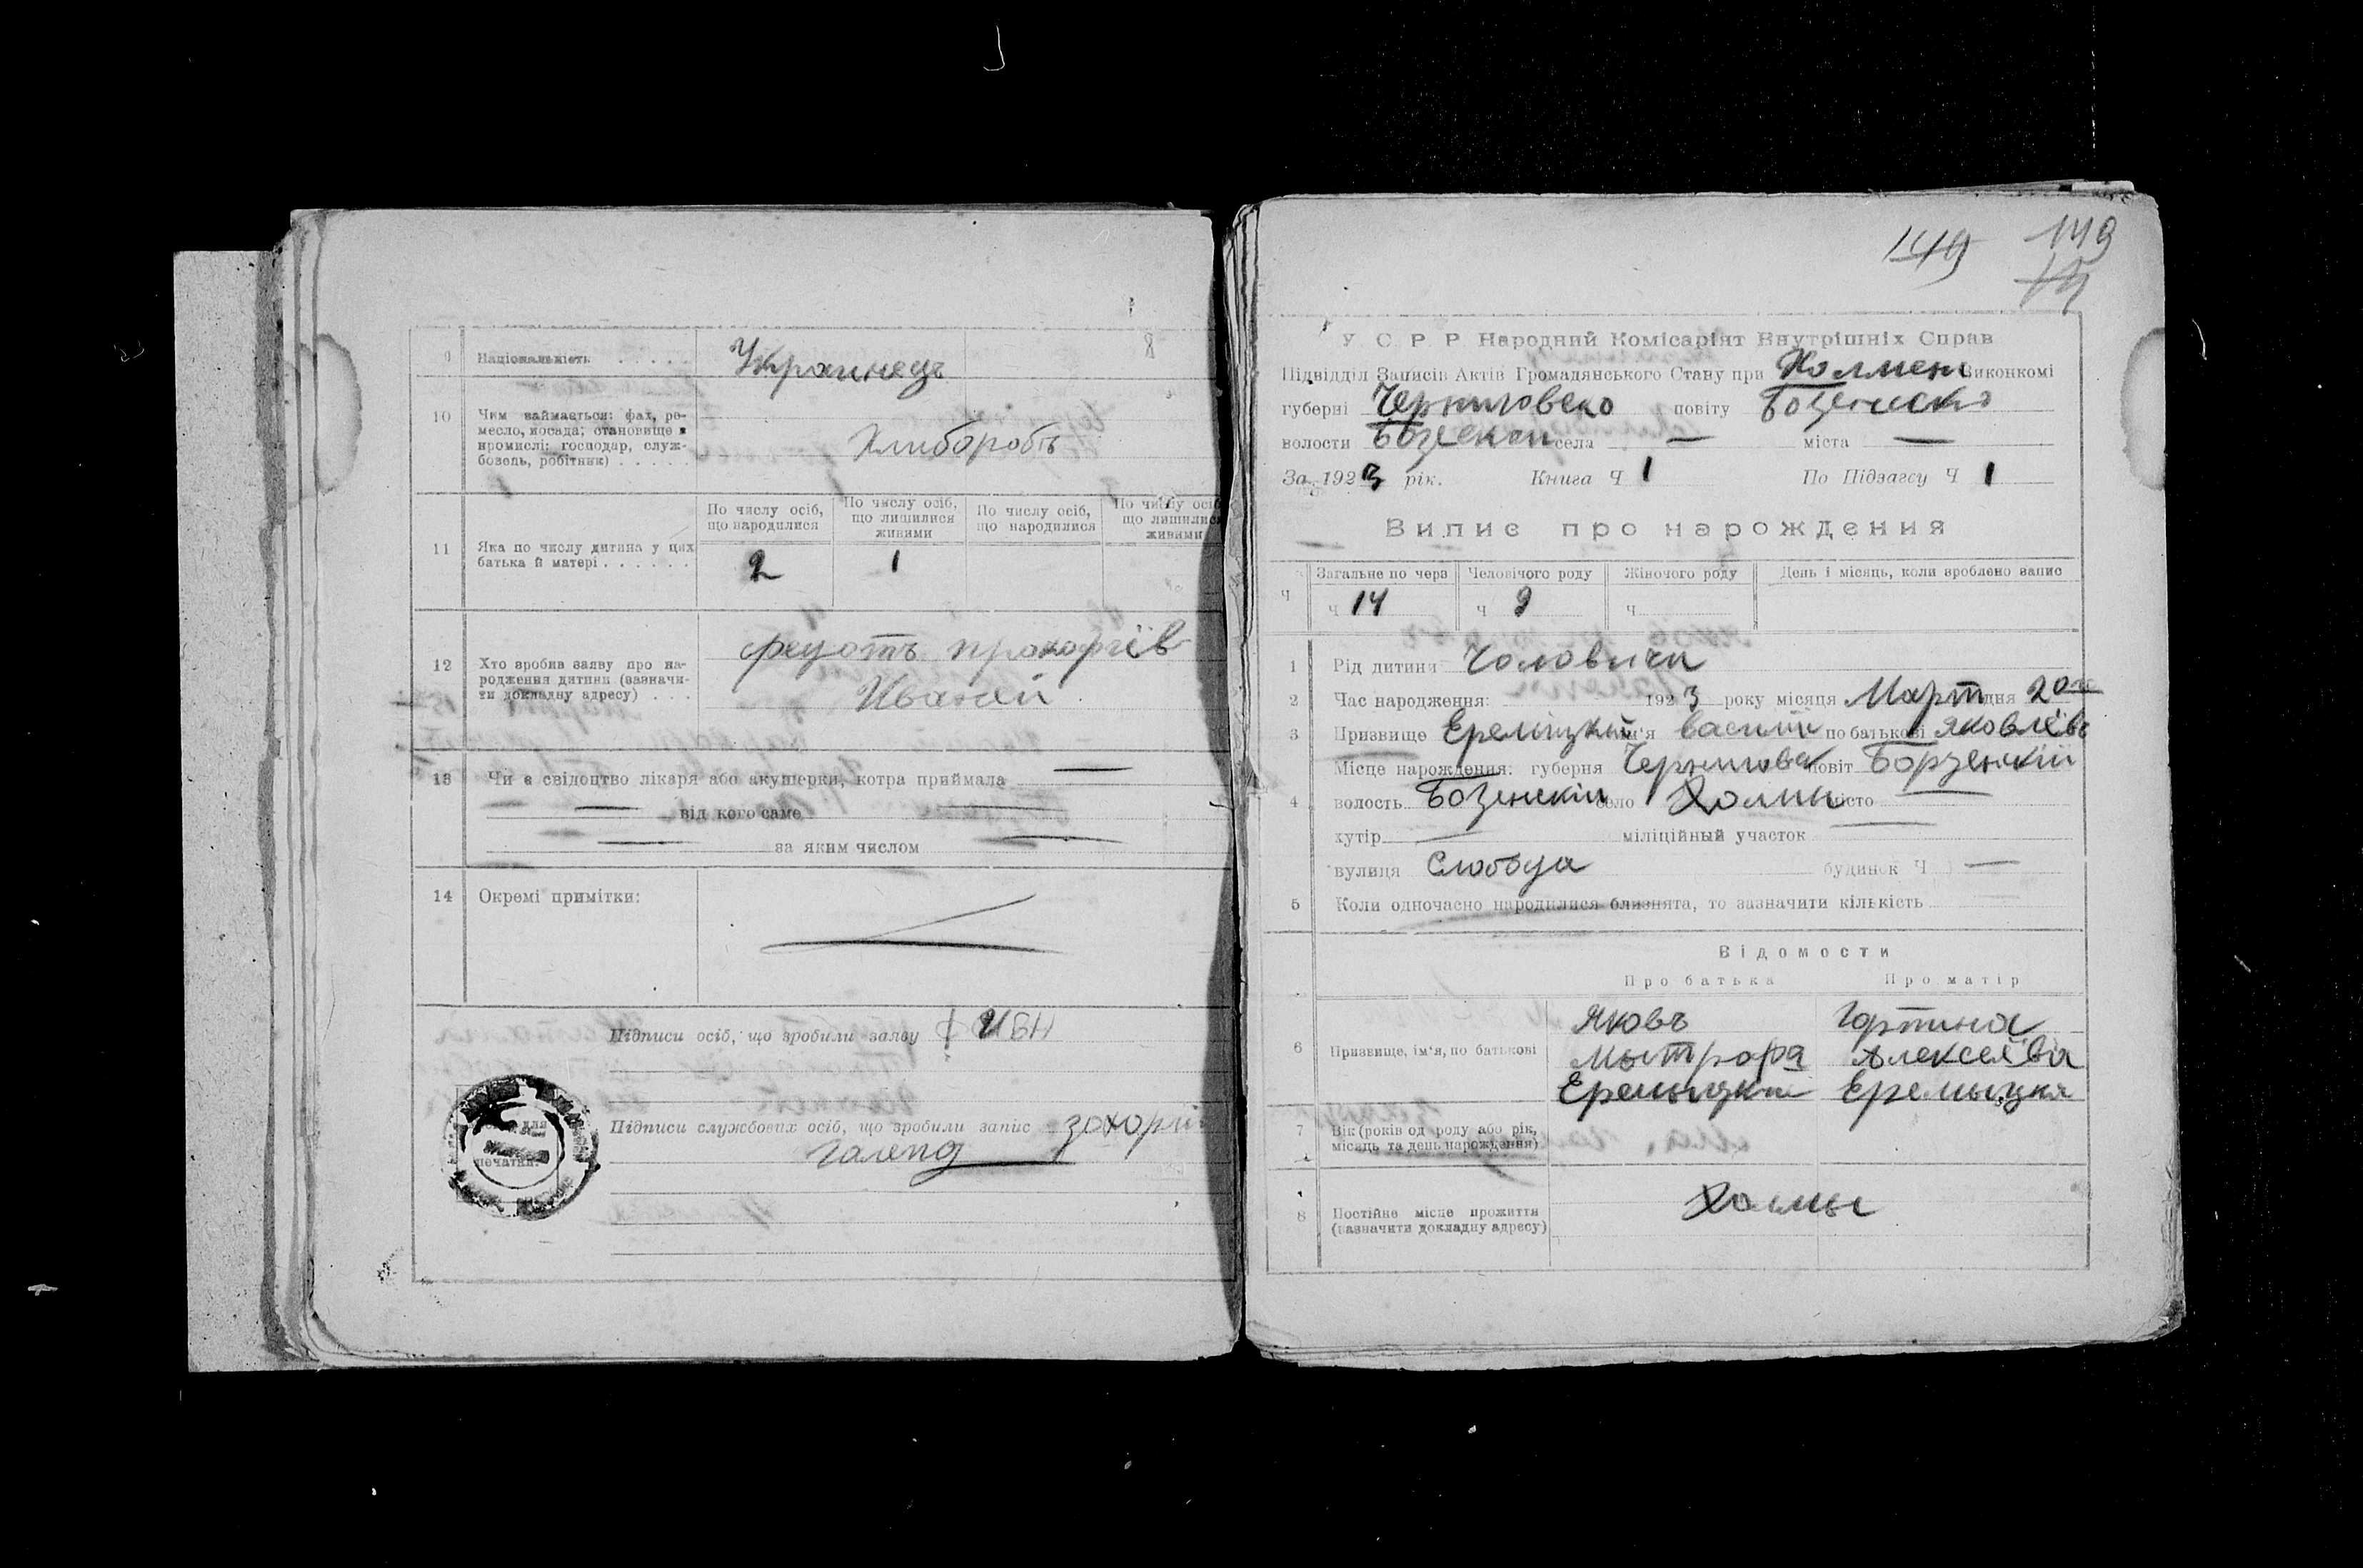 9 Національність . . . . . Украинець
10 Чим займається: фах, ре-
месло, посада; становище в
промислі: господар, служ-
бовець, робітник) . . . . .
Хлиборобъ
По числу осіб, що народилися
По числу осіб, що лишилися живими
По числу осіб, що народилися
По числу осіб, що лишилися живими
11 Яка по числу дитина у цих
батька й матері . . . . . .
2 1
12 Хто зробив заяву про на-
родження дитини (зазначи-
ти докладну адресу) . . .
Федотъ Прокофіїв
Иваней
13 Чи є свідоцтво лікаря або акушерки, котра приймала —
— від кого саме
за яким числом
14 Окремі примітки:
Підписи осіб, що зробили заяву
Підписи службових осіб, що зробили запис
для
печатки
149 149
У. С. Р. Р Народний Комісаріят Внутрішніх Справ
Підвідділ Записів Актів Громадянського Стану при Холмен Виконкомі
губерні Черниговско повіту Бозенско
волости Бозенкои села — міста —
За 1923 рік. Книга Ч 1 По Підзагсу Ч 1
Випис про народження
Загальне по черз Человічого роду Жіночого роду День і місяць, коли зроблено запис
Ч ч 14 ч 9 ч
1 Рід дитини Чоловичи
2 Час народження: 1923 року місяця Март дня 20го
3 Призвище Еремицкий ім'я Василій по батькові Яковлевъ
Місце нарождення: губерня Чернигова повіт Борзенский
4 волость Бозенскии село Холми місто
хутір — міліційный участок —
вулиця Слобода будинок Ч —
5 Коли одночасно народилися близнята, то зазначити кількість
Відомости
Про батька Про матір
6 Призвище, ім'я, по батькові
Яковъ Горпина
Мытрофа Алексеева
Еремицкий Еремыцка
7 Вік (років од роду або рік,
місяць та день нарождення)
8 Постійне місце прожиття
(зазначити докладну адресу)
Холмы